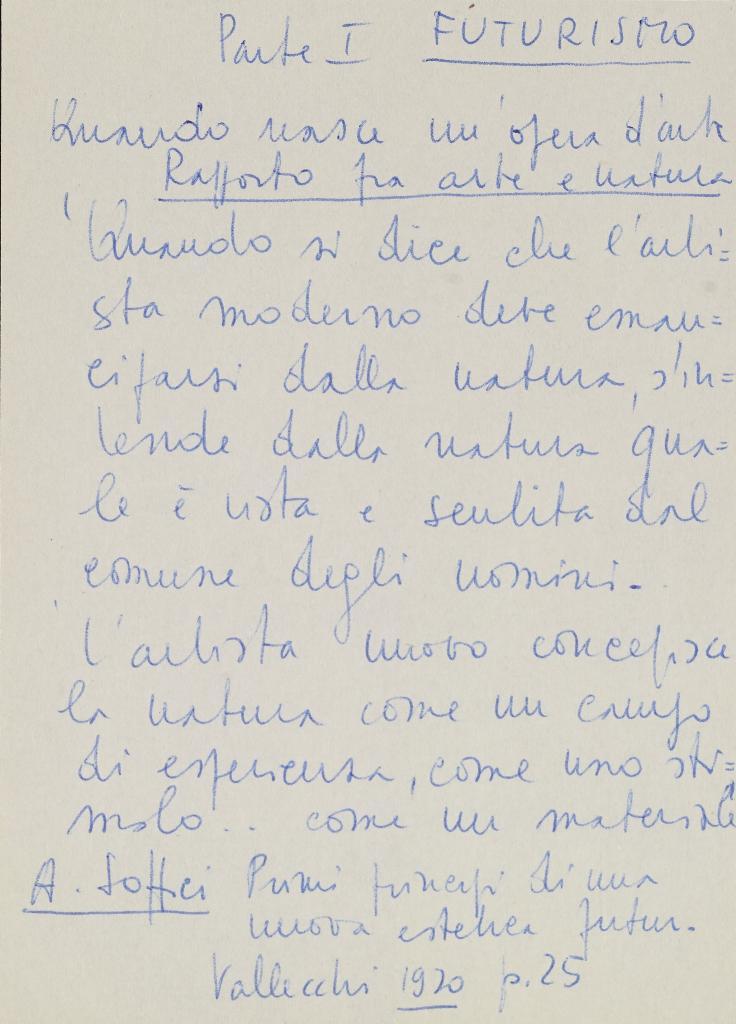 Parte I FUTURISMO
Quando nasce un'opera d'arte
Rapporto fra arte e natura
'Quando si dice che l'arti=
sta moderno deve eman=
ciparsi dalla natura, s'in=
tende dalla natura qua=
le è vista e sentita dal
comune degli uomini.
'L'artista nuovo concepisce
la natura come un campo
di esperienza, come uno sti=
molo.. come un materiale
A. Soffici Primi principi di una
nuova estetica futur.
Vallecchi 1920 p. 25